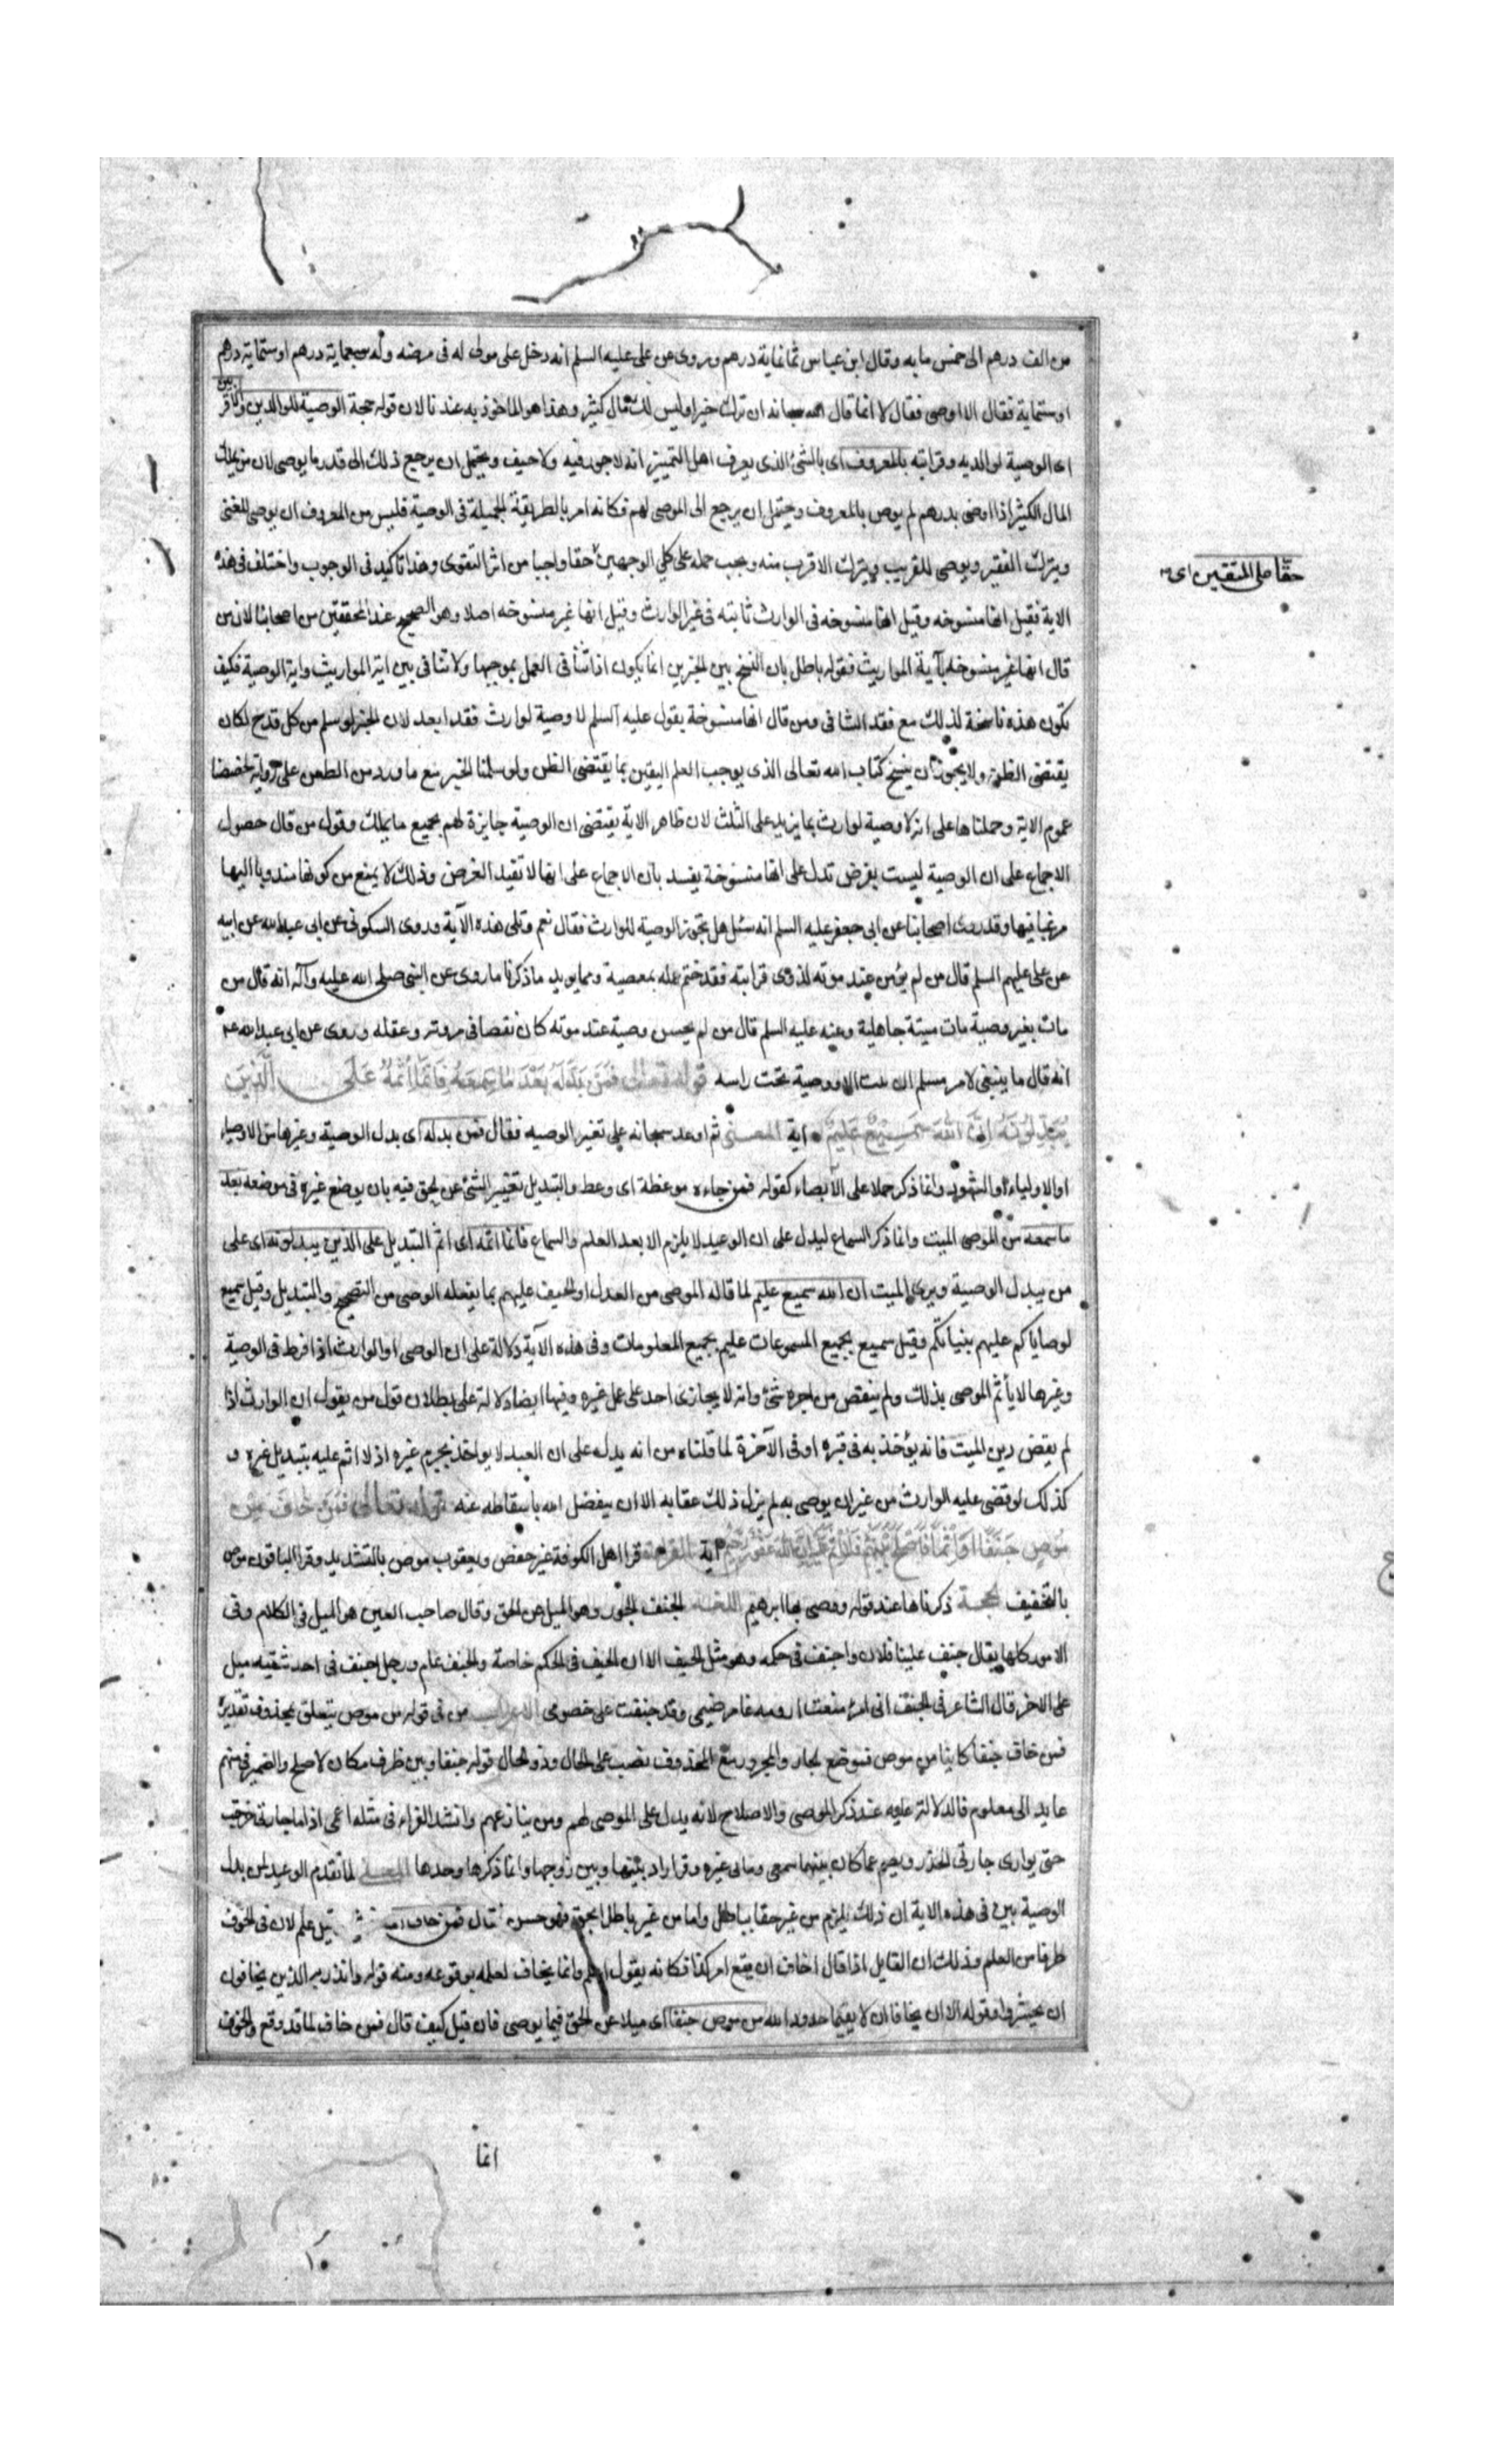 من الف درهم الى خمس مايه وقال ابن عباس ثمانماية درهم وروى عن على عليه السلم انه دخل على مولى له فى مرضه وله سبعماية درهم او ستماية درهم
او ستماية فقال الا اوصى فقال لا انما قال الله سبحانه ان ترك خيرا وليس لك مال كثير وهذا هو الماخوذ به عندنا لان قوله حجة الوصية للوالدين والاقربين
اى الوصية لوالديه وقرابته بالمعروف اى بالشئ الذى يعرف اهل التمييز انه لا جور فيه ولا حيف ويحتمل ان يرجع ذلك الى قدر ما يوصى لان من يملك
المال الكثير اذا اوصى بدرهم لم يوص بالمعروف ويحتمل ان يرجع الى الموصى لهم فكانه امر بالطريقة الجميلة فى الوصية فليس من المعروف ان يوصى للغنى
ويترك الفقير ويوصى للقريب ويترك الاقرب منه ويجب حمله على كلى الوجهين حقا واجبا من اثر التقوى وهذا تاكيد فى الوجوب واختلف فى هذه
حقا على المتقين اى
الاية فقيل انها منسوخه وقيل انها منسوخه فى الوارث ثابته فى غير الوارث وقيل انها غير منسوخه اصلا وهو الصحيح عند المحققين من اصحابنا لان من
قال انها غير منسوخه بآية المواريث فقوله باطل بان النسخ بين الخبرين انما يكون اذا تنافى العمل بموجبها ولا تنافى بين اية المواريث واية الوصية فكيف
تكون هذه ناسخة لذلك مع فقد التنافى ومن قال انها منسوخة بقول عليه السلم لا وصية لوارث فقد ابعد لان الخبر لو سلم من كل قدح لكان
يقتضى الظن ولا يجوز ان ينسخ كتاب الله تعالى الذى يوجب العلم اليقين بما يقتضى الظن ولو سلمنا الخبر مع ما ورد من الطعن على روايته لخصصنا
عموم الاية وحملناها على انه لا وصية لوارث بما يزيد على الثلث لان ظاهر الاية يقتضى ان الوصية جايزة لهم بجميع ما يملك وقول من قال حصول
الاجماع على ان الوصية ليست بفرض تدل على انها منسوخة يفسد بان الاجماع على انها لا تفيد الفرض وذلك لا يمنع من كونها مندوبا اليها
مرغبا فيها وقد روى اصحابنا عن ابى جعفر عليه السلم انه سئل هل تجوز الوصية للوارث فقال نعم وتلى هذه الآية وروى السكونى عن ابى عبد الله عن ابيه
عن على عليهم السلم قال من لم يوص عند موته لذوى قرابته فقد ختم عمله بمعصية ومما يويد ما ذكرنا ما روى عن النبى صلى الله عليه وآله انه قال من
مات بغير وصية مات ميتة جاهلية وعنه عليه السلم قال من لم يحسن وصية عند موته كان نقصا فى مروته وعقله وروى عن ابى عبد الله ع
انه قال ما ينبغى لامر مسلم ان يبت الا ووصية تحت راسه قوله تعالى فَمَنْ بَدَّلَهُ بَعْدَ مَا سَمِعَهُ فَاِنَّمَا اِثْمُهُ عَلَى الَّذِينَ
يُبَدِّلُونَهُ اِنَّ اللّٰهَ سَمِيعٌ عَلِيمٌ اية المعنى ثم اوعد سبحانه على تغير الوصيه فقال فمن بدله اى بدل الوصية وغيرها من الاوصياء
او الاولياء او الشهود وانما ذكر حملا على الايصاء كقوله فمن جاءه موعظة اى وعظ والتبديل تغيير الشئ عن الحق فيه بان يوضع غيره فى موضعه بعد
ما سمعه من الموصى الميت وانما ذكر السماع ليدل على ان الوعيد لا يلزم الا بعد العلم والسماع فانما اثمه اى اثم التبديل على الذين يبدلونه اى على
من يبدل الوصية وبرئ الميت ان الله سميع عليم لما قاله الموصى من العدل او الحيف عليهم بما يفعله الوصى من التصحيح والتبديل وقيل سميع
لوصاياكم عليهم بنياتكم وقيل سميع بجميع المسموعات عليم بجميع المعلومات وفى هذه الآية دلالة على ان الوصى او الوارث اذا فرط فى الوصية
وغيرها لا يأثم الموصى بذلك ولم ينقص من اجره شئ وانه لا يجازى احد على عمل غيره وفيها ايضا دلالة على بطلان قول من يقول ان الوارث اذا
لم يقض دين الميت فانه يؤخذ به فى قبره او فى الآخرة لما قلناه من انه يدل على ان العبد لا يواخذ بجرم غيره اذ لا اثم عليه بتبديل غيره و
كذلك لو قضى عليه الوارث من غير ان يوصى به لم يزل ذلك عقابه الا ان يتفضل الله باسقاطه عنه قوله تعالى فَمَنْ خَافَ مِنْ
مُوصٍ جَنَفًا اَوْ اِثْمًا فَاَصْلَحَ بَيْنَهُمْ فَلَا اِثْمَ عَلَيْهِ اِنَّ اللّٰهَ غَفُورٌ رَحِيمٌ اية القراءة قرا اهل الكوفة غير حفص ويعقوب موص بالتشديد وقرا الباقون موص
بالتخفيف الحجة ذكرناها عند قوله ووصى بها ابرهيم اللغة الجنف الجور وهو الميل عن الحق وقال صاحب العين هو الميل فى الكلام وفى
الامور كلها يقال جنف علينا فلان واجنف فى حكمه وهو مثل الحيف الا ان الحيف فى الحكم خاصة والجنف عام ورجل اجنف فى احد شقيه ميل
على الاخر قال الشاعر فى الجنف انى امرء منعت ارومه عامر ضيمى وقد جنفت على خصومى الاعراب من فى قوله من موص يتعلق بمحذوف تقديره
فمن خاف جنفا كاينا من موص فموضع الجار والمجرور مع المحذوف نصب على الحال وذو الحال قوله جنفا وبين ظرف مكان لاصلح والضمير فى بينهم
عايد الى معلوم فالدلالة عليه عند ذكر الموصى والاصلاح لانه يدل على الموصى لهم ومن ينازعهم وانشد الفراء فى مثله اعمى اذا ما جارتى خرجت
حتى يوارى جارتى الخدر ويصم عما كان بينهما سمعى وما بى غيره وقر اراد بينها وبين زوجها وانما ذكرها وحدها المعنى لما تقدم الوعيد لمن بدل
الوصية بين فى هذه الاية ان ذلك يلزم من غير حقا بباطل واما من غير باطلا بحق فهو حسن فقال فمن خاف قيل علم لان فى الخوف
طرفا من العلم وذلك ان القايل اذا قال اخاف ان يقع امر كذا فكانه يقول اعلم وانما يخاف لعلمه بوقوعه ومنه قوله وانذر به الذين يخافون
ان يحشروا وقوله الا ان يخافا ان لا يقيما حدود الله من موص جنفا اى ميلا عن الحق فيما يوصى فان قيل كيف قال فمن خاف لما قد وقع والخوف
انما
١٠